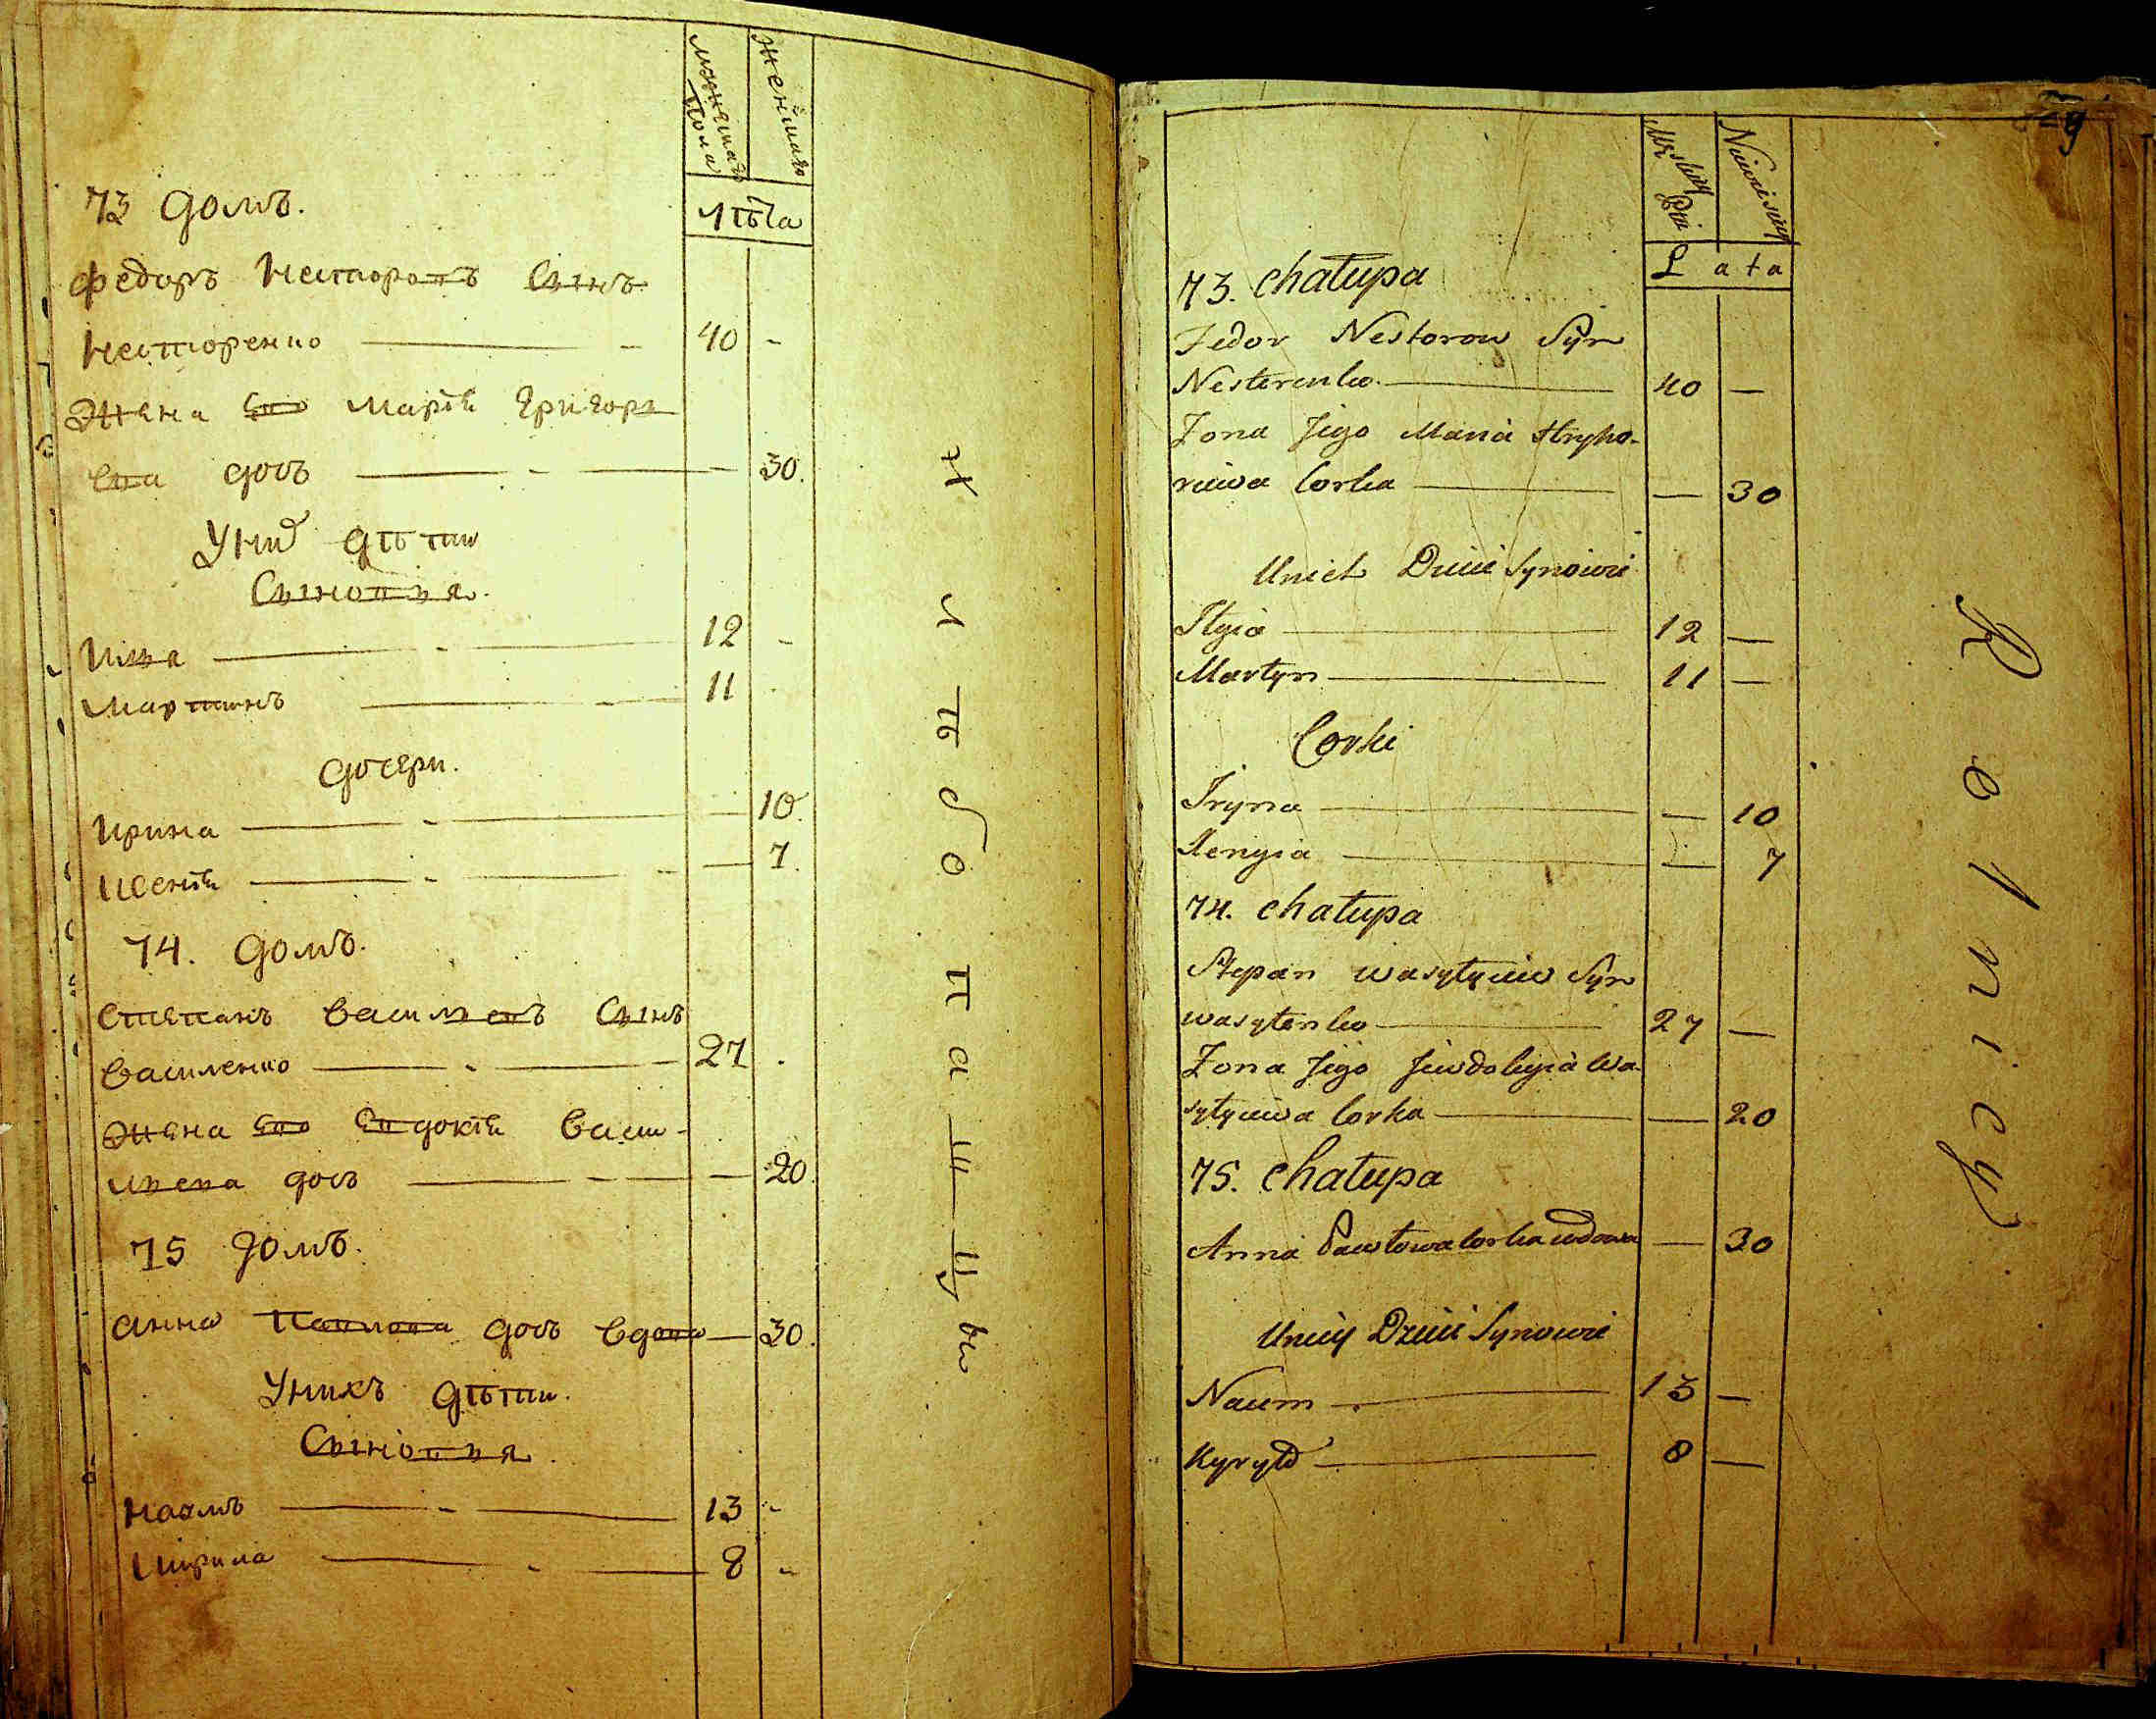 мужеска пола
женска
лѣта
73 домъ.
Федоръ Несторовъ Сынъ
Несторенко — 40 -
Жена Его Марія Григорь
Ева дочь — 30.
У них дѣти
Сыновья.
Илья — 12 -
Мартинъ — 11
дочери.
Ирина — 10.
Ксенія — 7.
74. домъ.
Степанъ Васильевъ Сынъ
Василенко — 27
Жена Его Евдокія Васи-
льева дочь — 20.
75 домъ.
Анна Павлова дочь Вдова — 30.
Унихъ дѣти.
Сыновья.
Наумъ — 13 -
Кирила — 8 -
Хлѣбопашцы
9
Męskiey Płci
Niewieściey
Lata
73. Chałupa
Fedor Nestorow Syn
Nesterenko — 40 —
Zona Jego Maria Hryho-
riewa Corka — 30
Unich Dzieci Synowie
Ilyia — 12 —
Martyn — 11 —
Corki
Iryna — 10
Xenyia — 7
74. Chałupa
Stepan Wasylyiew Syn
Wasylenko — 27 —
Zona Jego Jewdokyia Wa-
sylyiewa Corka — 20
75. Chałupa
Anna Pawłowa Corka wdowa — 30
Unieiy Dzieci Synowie
Naum — 13 —
Kyryło — 8 —
Rolnicy